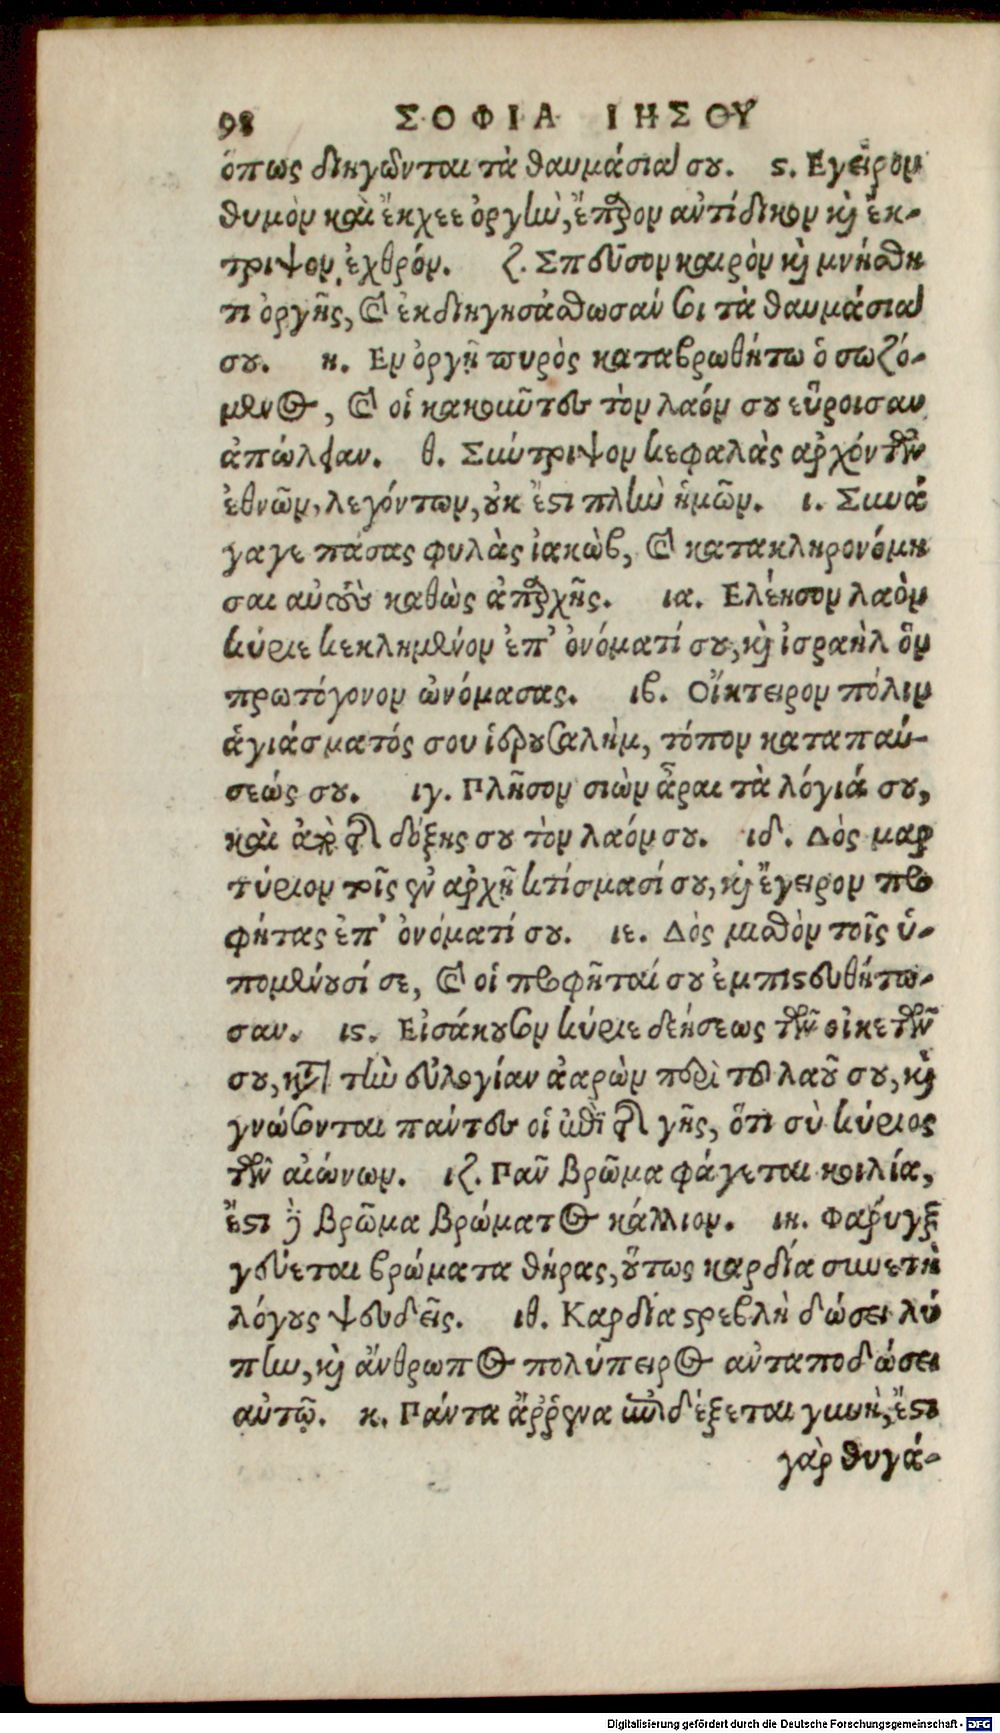 98 ΣΟΦΙΑ ΙΗΣΟΥ
ὅπως διηγῶνται τὰ θαυμάσιά σου. ϛ. Εγειρον
θυμὸν καὶ ἔκχεε ὀργὴν, ἔπαρον αὐτίδικον καὶ ἔκ-
τριψον ἐχθρόν. ζ. Σπεῦσον καιρὸν καὶ μνήσθη
τι ὀργῆς, καὶ ἐκδιηγησάσθωσάν σοι τὰ θαυμάσιά
σου. η. Εν ὀργῇ πυρὸς καταβρωθήτω ὁ σωζό-
μενος, καὶ οἱ κακοῦντες τὸν λαόν σου εὕροισαν
ἀπώλειαν. θ. Σύντριψον κεφαλὰς ἀρχόντων
ἐθνῶν, λεγόντων, οὐκ ἔστι πλὴν ἡμῶν. ι. Συνά
γαγε πάσας φυλὰς ἰακὼβ, καὶ κατακληρονόμη
σαι αὐτοὺς καθὼς ἀπαρχῆς. ια. Ελέησον λαὸν
κύριε κεκλημένον ἐπ' ὀνόματί σου, καὶ ἰσραὴλ ὃν
πρωτόγονον ὠνόμασας. ιβ. Οἴκτειρον πόλιν
ἁγιάσματός σου ἱερουσαλὴμ, τόπον καταπαύ-
σεώς σου. ιγ. Πλῆσον σιὼν ἆραι τὰ λόγιά σου,
καὶ ἀπὸ τῆς δόξης σου τὸν λαόν σου. ιδ. Δὸς μαρ
τύριον τοῖς ἐν ἀρχῇ κτίσμασί σου, καὶ ἔγειρον προ
φήτας ἐπ' ὀνόματί σου. ιε. Δὸς μισθὸν τοῖς ὑ-
πομένουσί σε, καὶ οἱ προφῆταί σου ἐμπιστευθήτω-
σαν. ιϛ. Εἰσάκουσον κύριε δεήσεως τῶν οἰκετῶν
σου, κατὰ τὴν εὐλογίαν ἀαρὼν περὶ τοῦ λαοῦ σου, καὶ
γνώσονται πάντες οἱ ἐπὶ τῆς γῆς, ὅτι σὺ κύριος
τῶν αἰώνων. ιζ. Παν βρῶμα φάγεται κοιλία,
ἔστι δὲ βρῶμα βρώματος κάλλιον. ιη. Φάρυγξ
γεύεται βρώματα θήρας, οὕτως καρδία συνετὴ
λόγους ψευδεῖς. ιθ. Καρδία στρεβλὴ δώσει λύ
πην, καὶ ἄνθρωπος πολύπειρος ἀνταποδώσει
αὐτῷ. κ. Πάντα ἄῤῥενα ἐπιδέξεται γυνὴ, ἔστι
γὰρ θυγά-
Digitalisierung gefördert durch die Deutsche Forschungsgemeinschaft - DFG